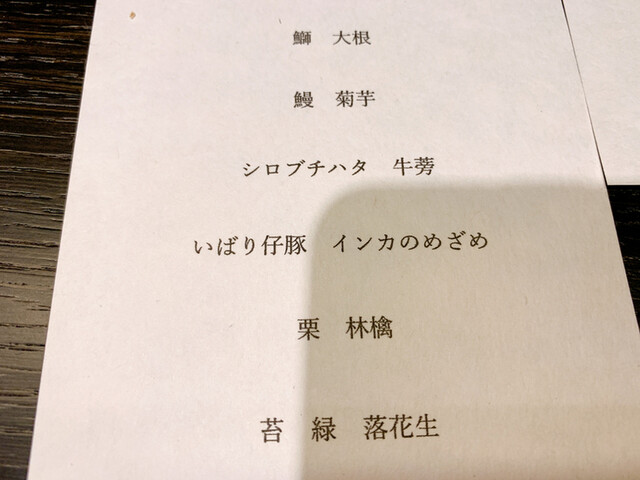 鰤　大根
鰻　菊芋
シロブチハタ　牛蒡
いばり仔豚　インカのめざめ
栗　林檎
苔　緑　落花生